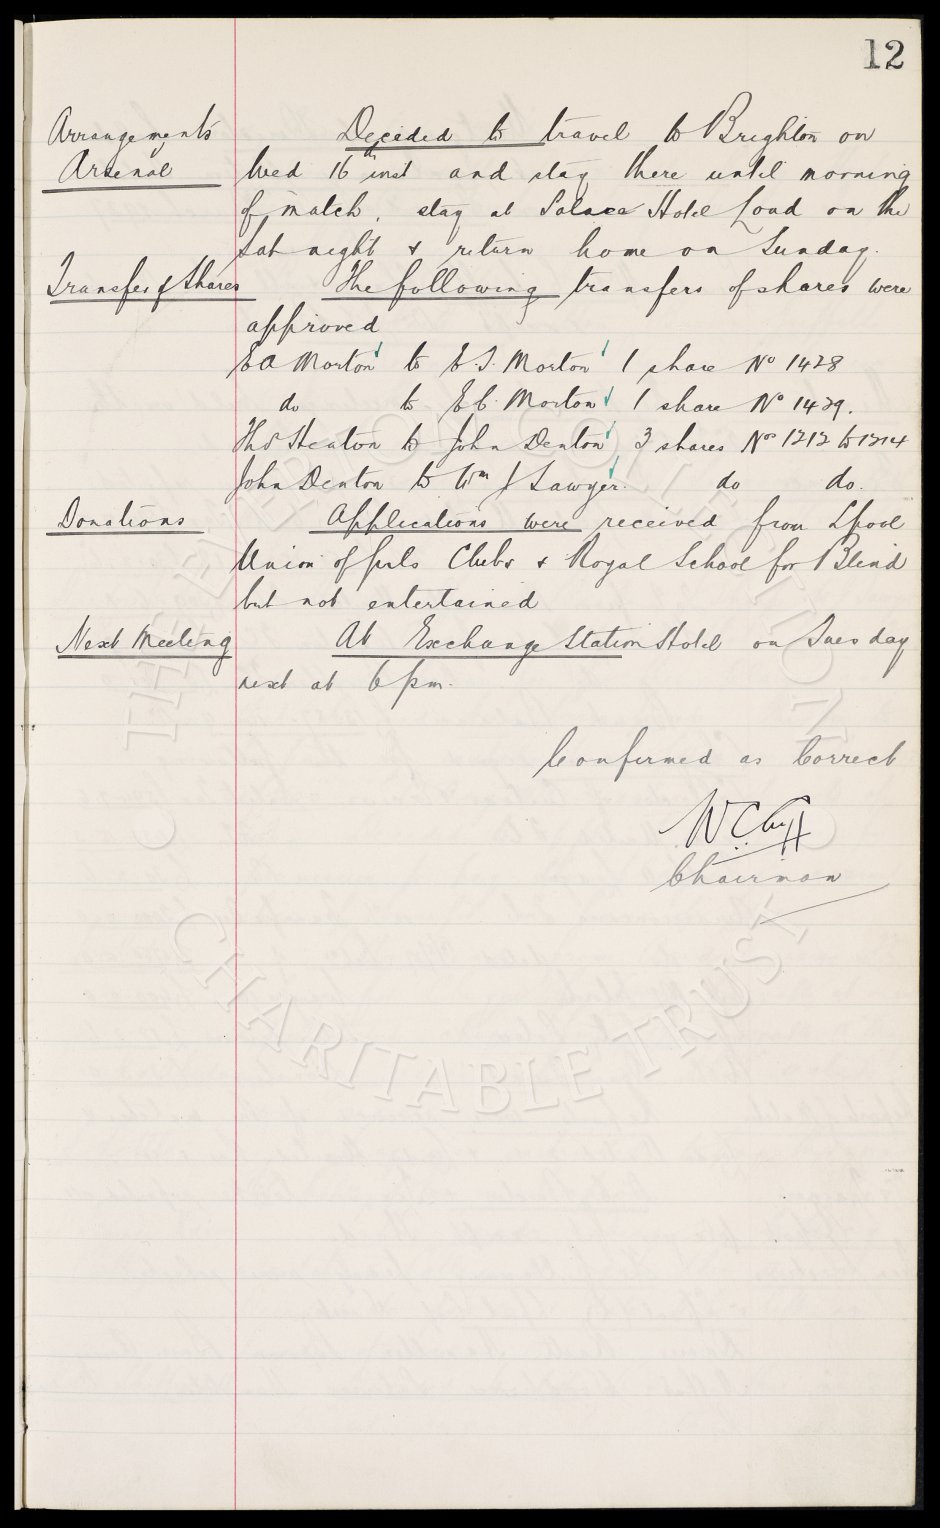 12
Arrangements Decided to travel to Brighton on
Arsenal Wed 16th inst and stay there until morning
of match, stay at Salace Hotel Lond on the
Sat night & return home on Sunday.
Transfer of Shares The following transfers of shares were
approved
E A Morton to E. S. Morton 1 share No 1428
do to E C. Morton 1 share No 1429.
Thos Heaton to John Denton 3 shares Nos 1212 to 1214
John Denton to Wm J Sawyer. do do.
Donations Applications were received from Lpool
Union of Girls Clubs & Royal School for Blind
but not entertained
Next Meeting At Exchange Station Hotel on Tuesday
next at 6 pm.
Confirmed as Correct
W C Cuff
Chairman
THE EVERTON COLLECTION
CHARITABLE TRUST